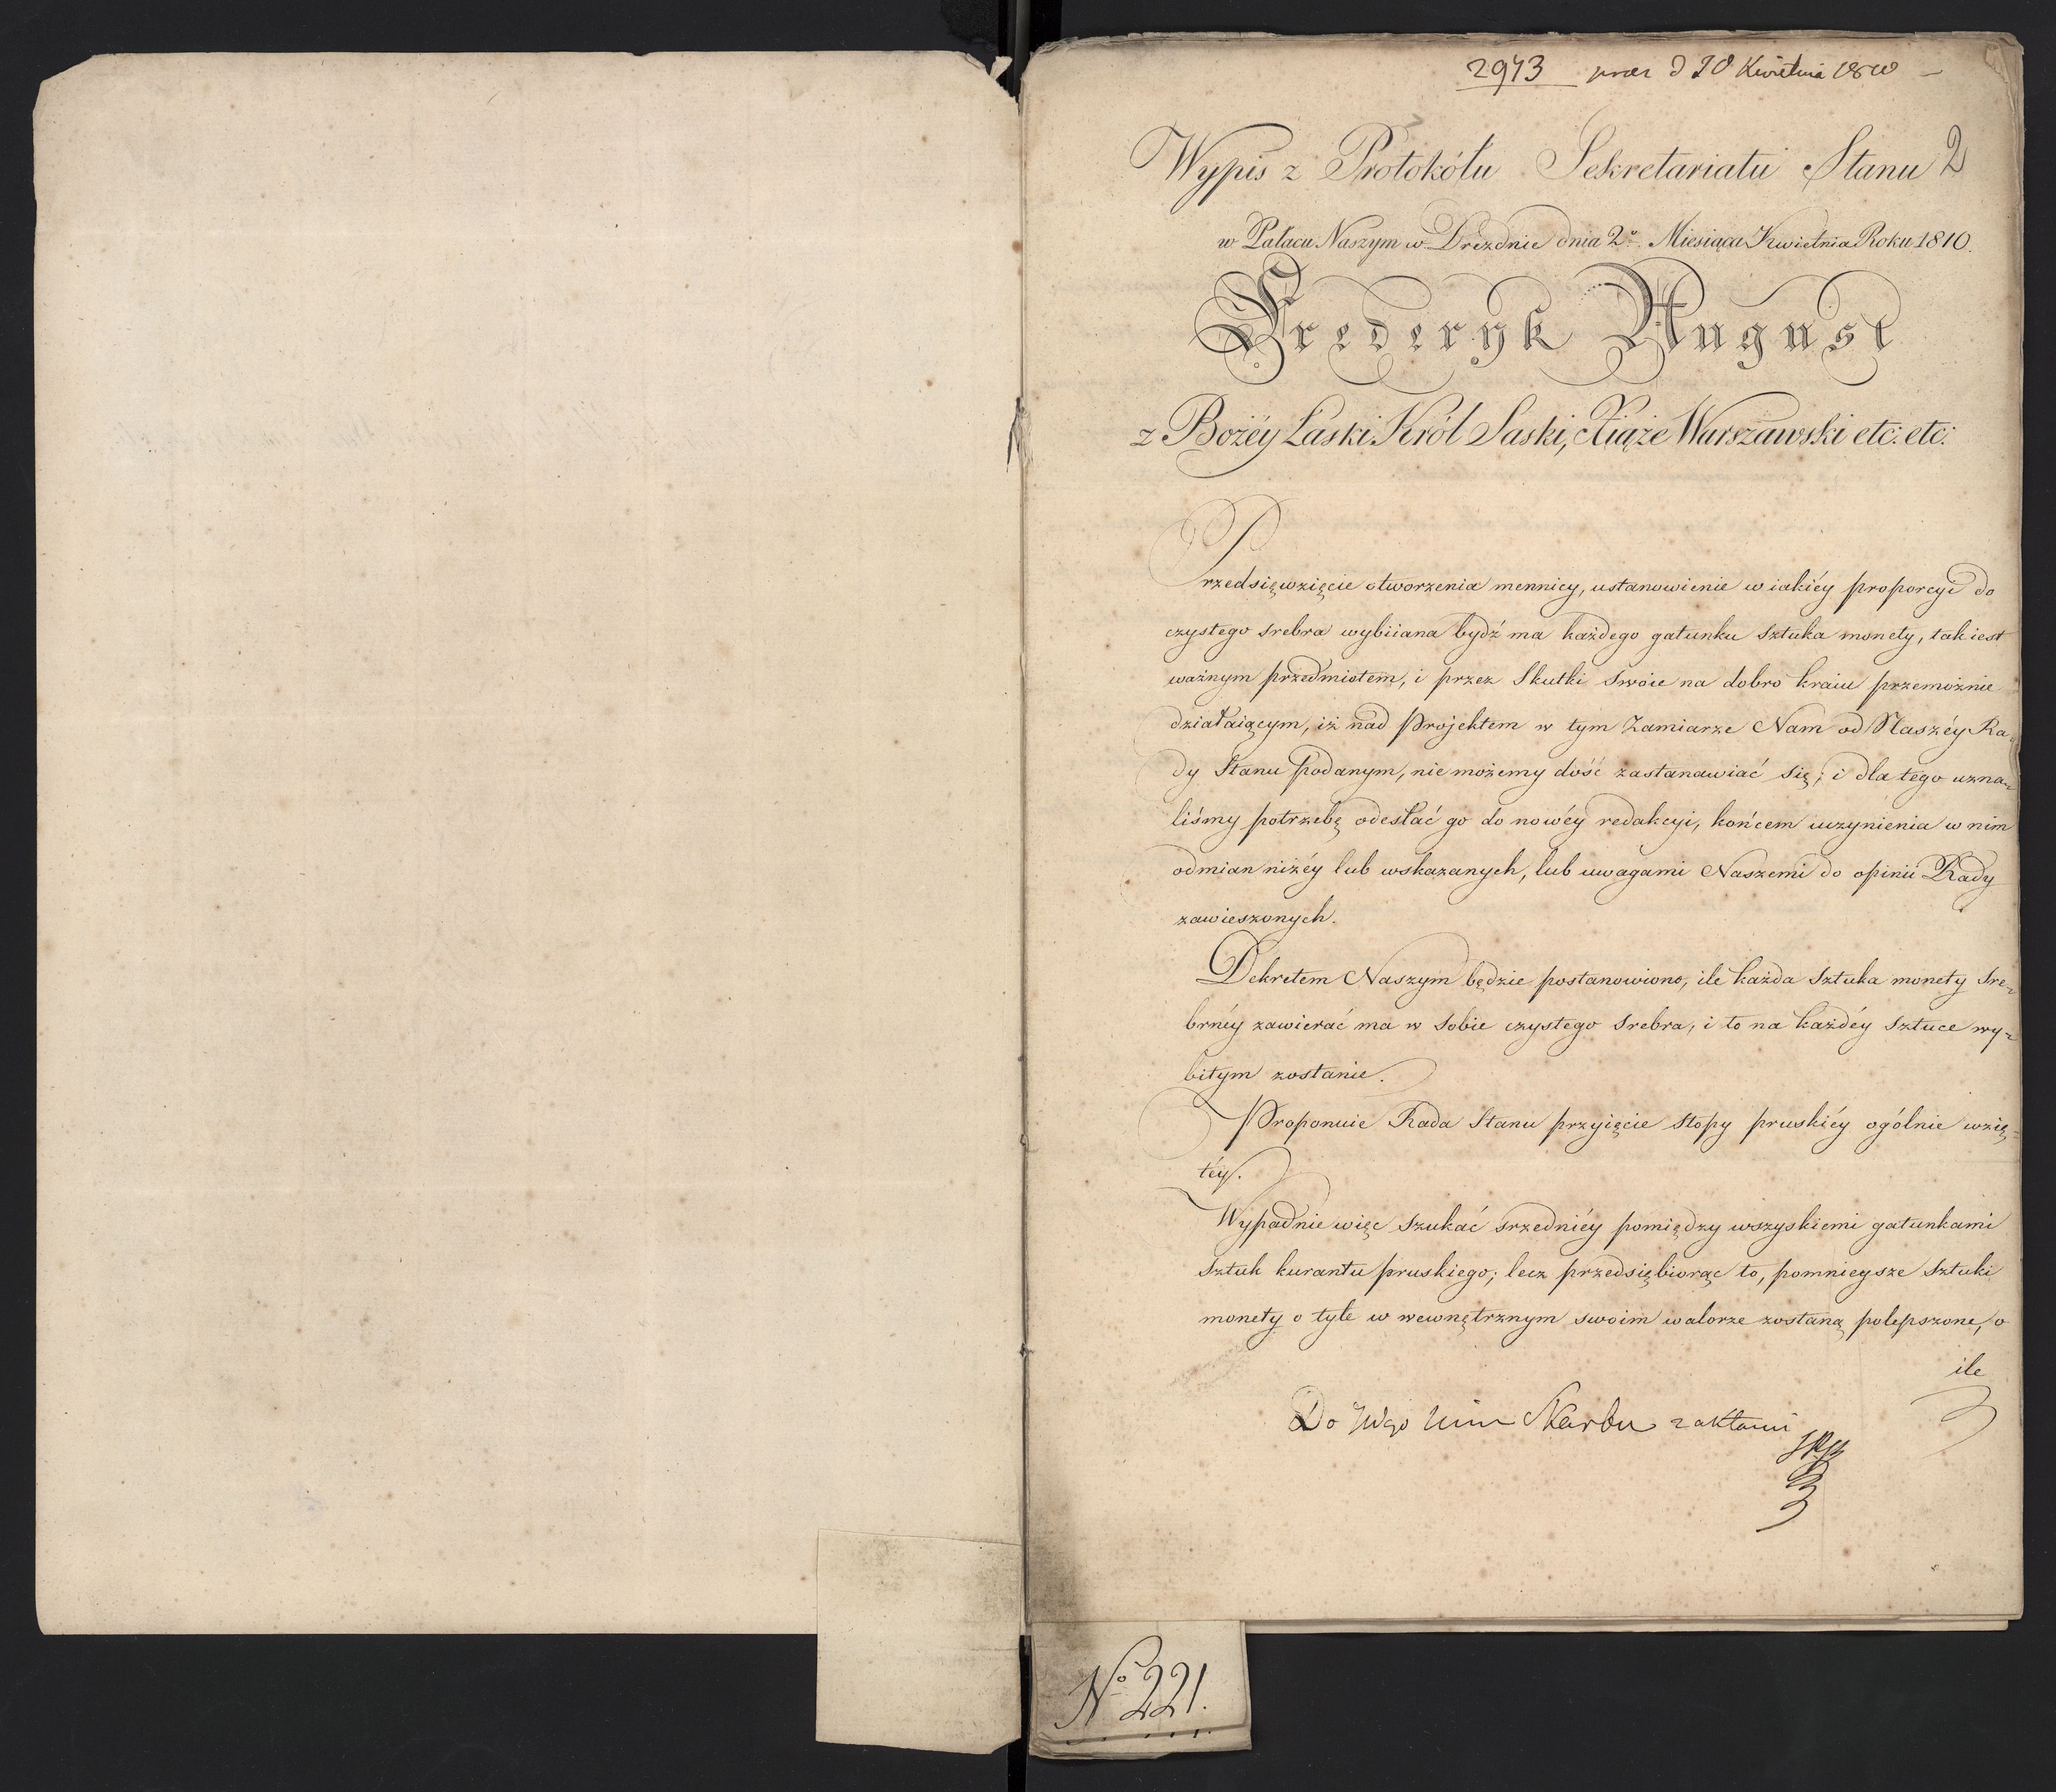 2943 d 20 Kwietnia 1810
Wypis z Protokółu Sekretariatu Stanu 2
w Pałacu Naszym w Dreznie dnia 2º Miesiąca Kwietnia Roku 1810.
Frederyk August
z Bożéy Łaski Król Saski, Xiąże Warszawski etc: etc:
Przedsięwzięcie otworzenia mennicy, ustanowienie w iakiéy proporcyi do
czystego srebra wybiiana bydź ma każdego gatunku sztuka monety, tak iest
ważnym przedmiotem, i przez skutki swoie na dobro kraiu przemożnie
działaiącym, iż nad Projektem w tym zamiarze Nam od Naszéy Ra-
dy Stanu podanym, nie możemy dość zastanawiać się; i dla tego uzna-
liśmy potrzebę odesłać go do nowéy redakcyi, końcem uczynienia w nim
odmian niżéy lub wskazanych, lub uwagami Naszemi do opinii Rady
zawieszonych.
Dekretem Naszym będzie postanowiono, ile każda sztuka monety sre-
brnéy zawierać ma w sobie czystego srebra, i to na każdéy sztuce wy-
bitym zostanie.
Proponuie Rada Stanu przyięcie stopy pruskiéy ogólnie wzię-
téy.
Wypadnie więc szukać srzedniéy pomiędzy wszyskiemi gatunkami
sztuk kurantu pruskiego; lecz przedsiębiorąc to, pomnieysze sztuki
monety o tyle w wewnętrznym swoim walorze zostaną polepszone, o
ile
Do Skarbu z aktami
Nº 221.